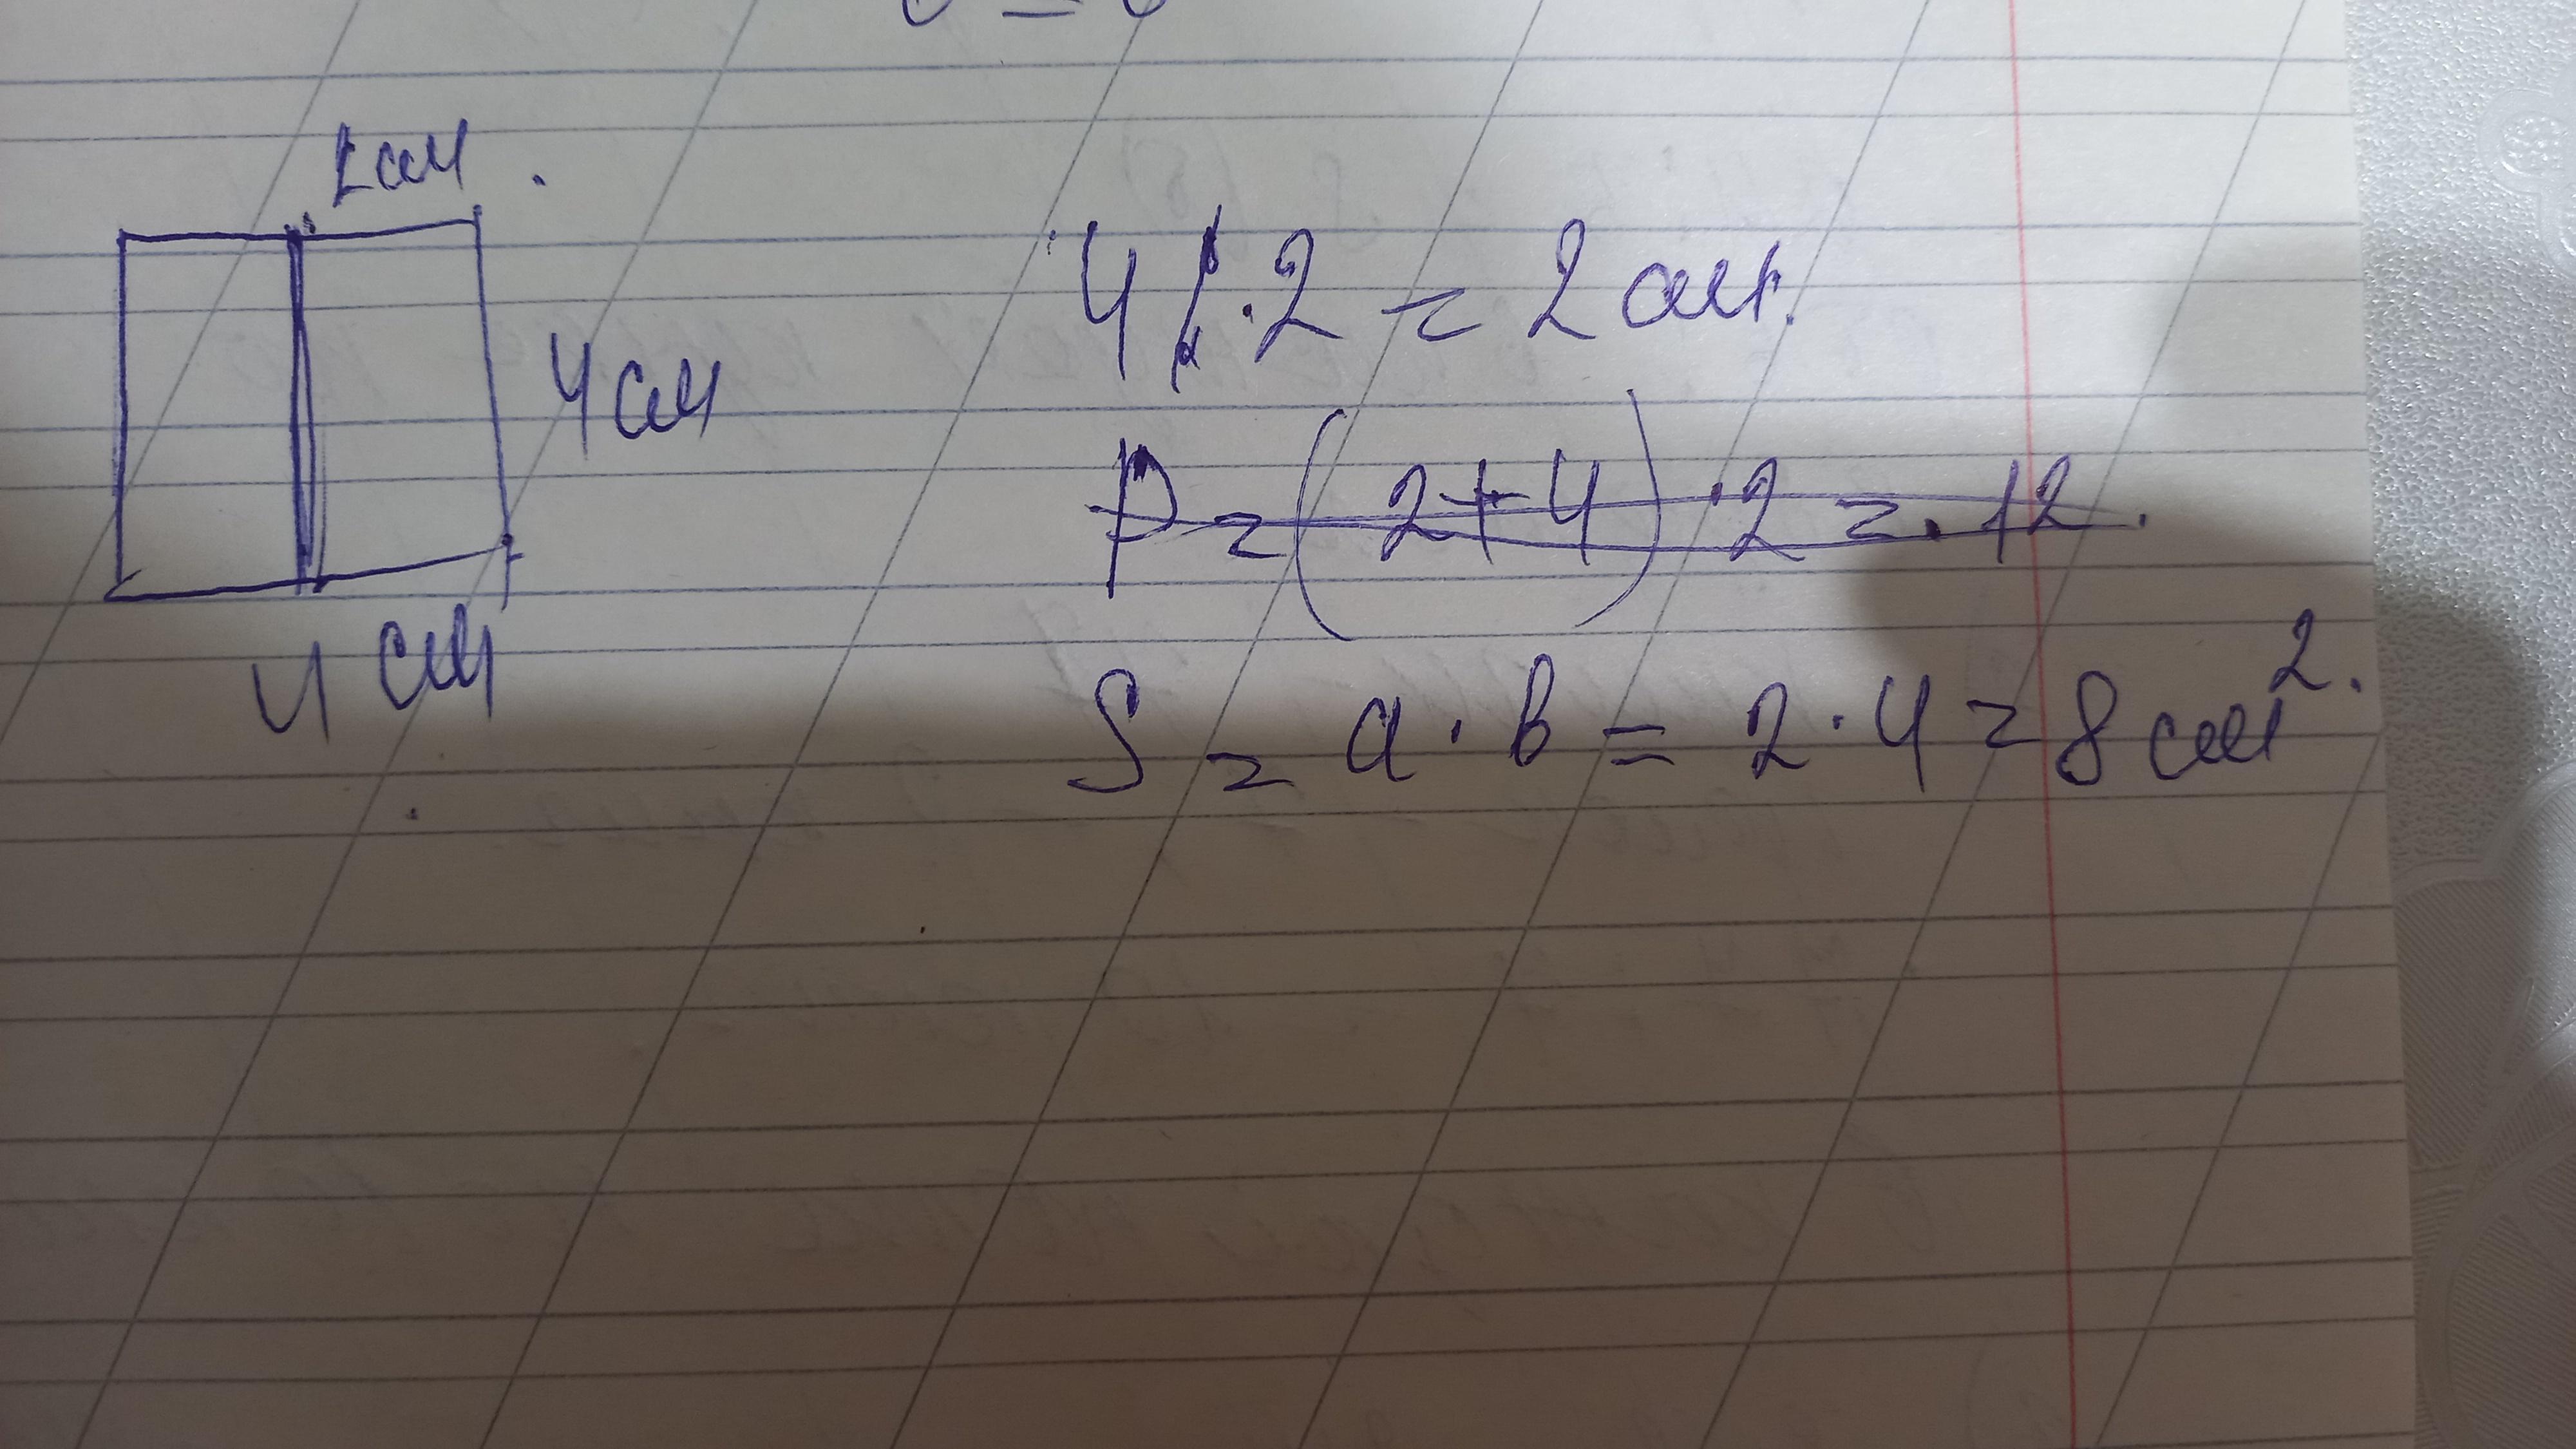 2 см.
4 см
4 см
4 : 2 = 2 см.
P = (2+4) · 2 = 12.
S = a · b = 2 · 4 = 8 см².